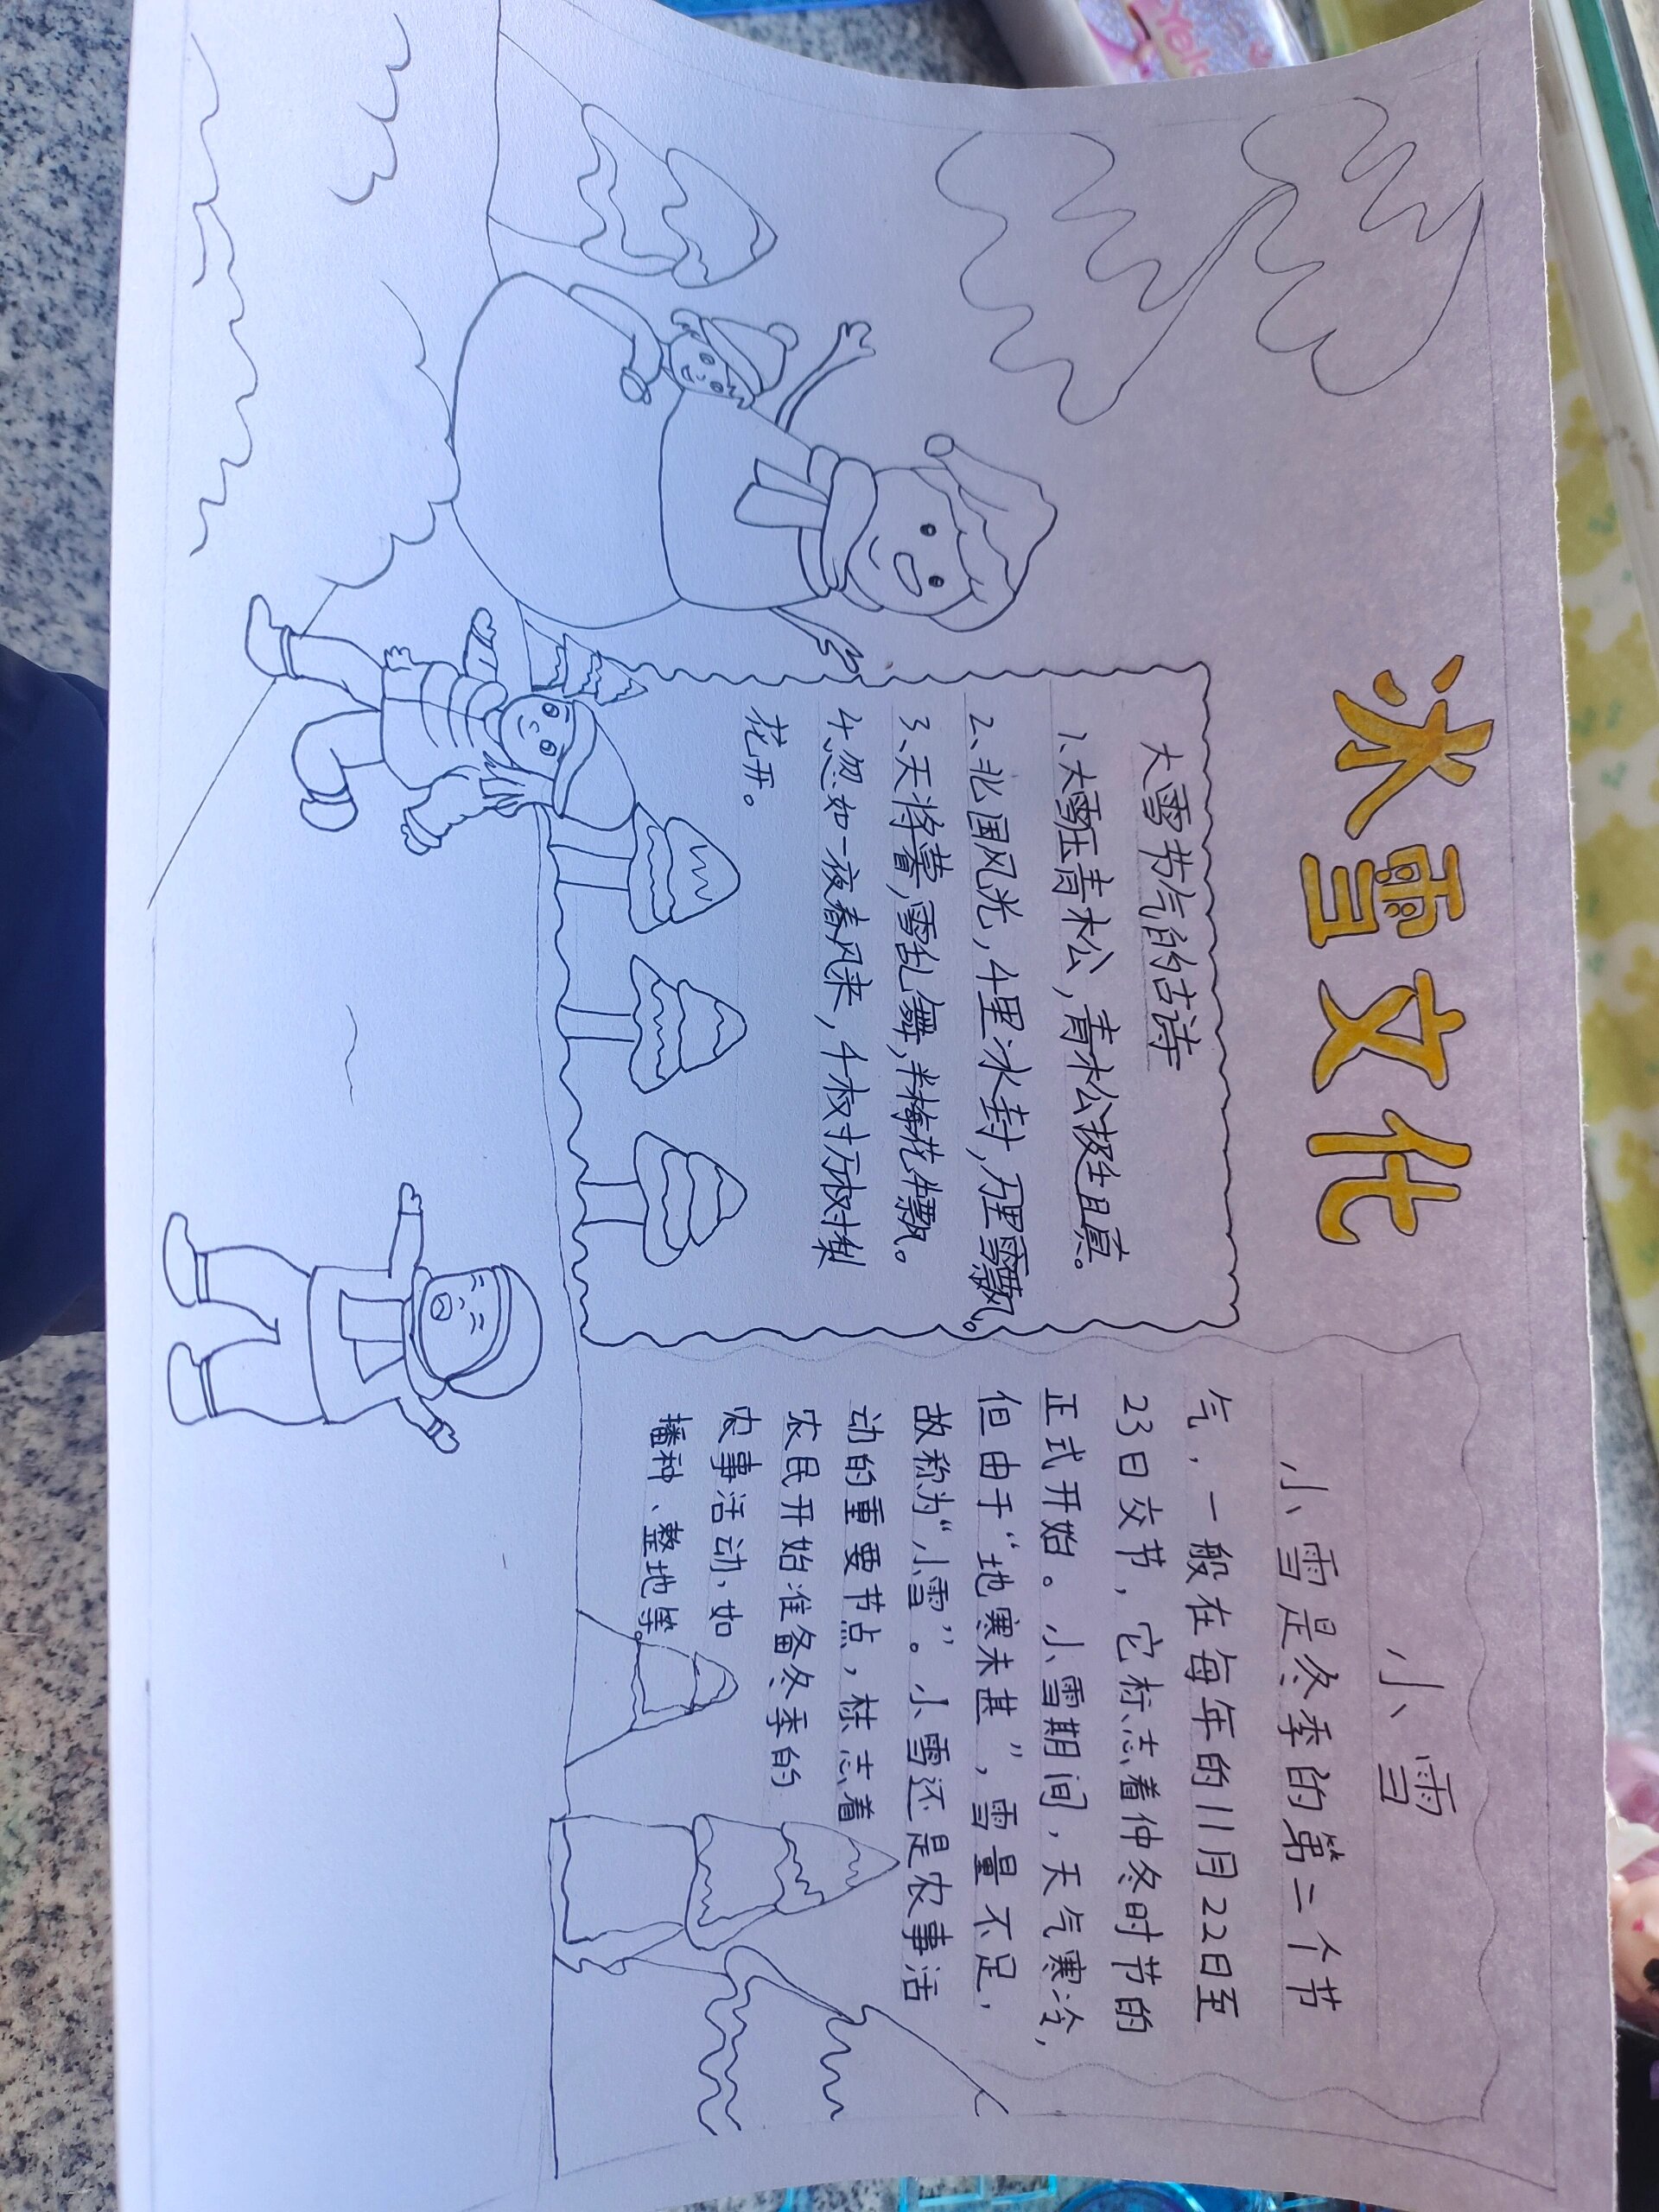 冰雪文化
大雪节气的古诗
1、大雪压青松,青松挺且直。
2、北国风光,千里冰封,万里雪飘。
3、天将暮,雪乱舞,半梅花半飘。
4、忽如一夜春风来,千树万树梨
花开。
小雪
小雪是冬季的第二个节
气,一般在每年的11月22日至
23日交节,它标志着仲冬时节的
正式开始。小雪期间,天气寒冷,
但由于“地寒未甚”,雪量不足,
故称为“小雪”。小雪还是农事活
动的重要节点,标志着
农民开始准备冬季的
农事活动,如
播种、整地等。